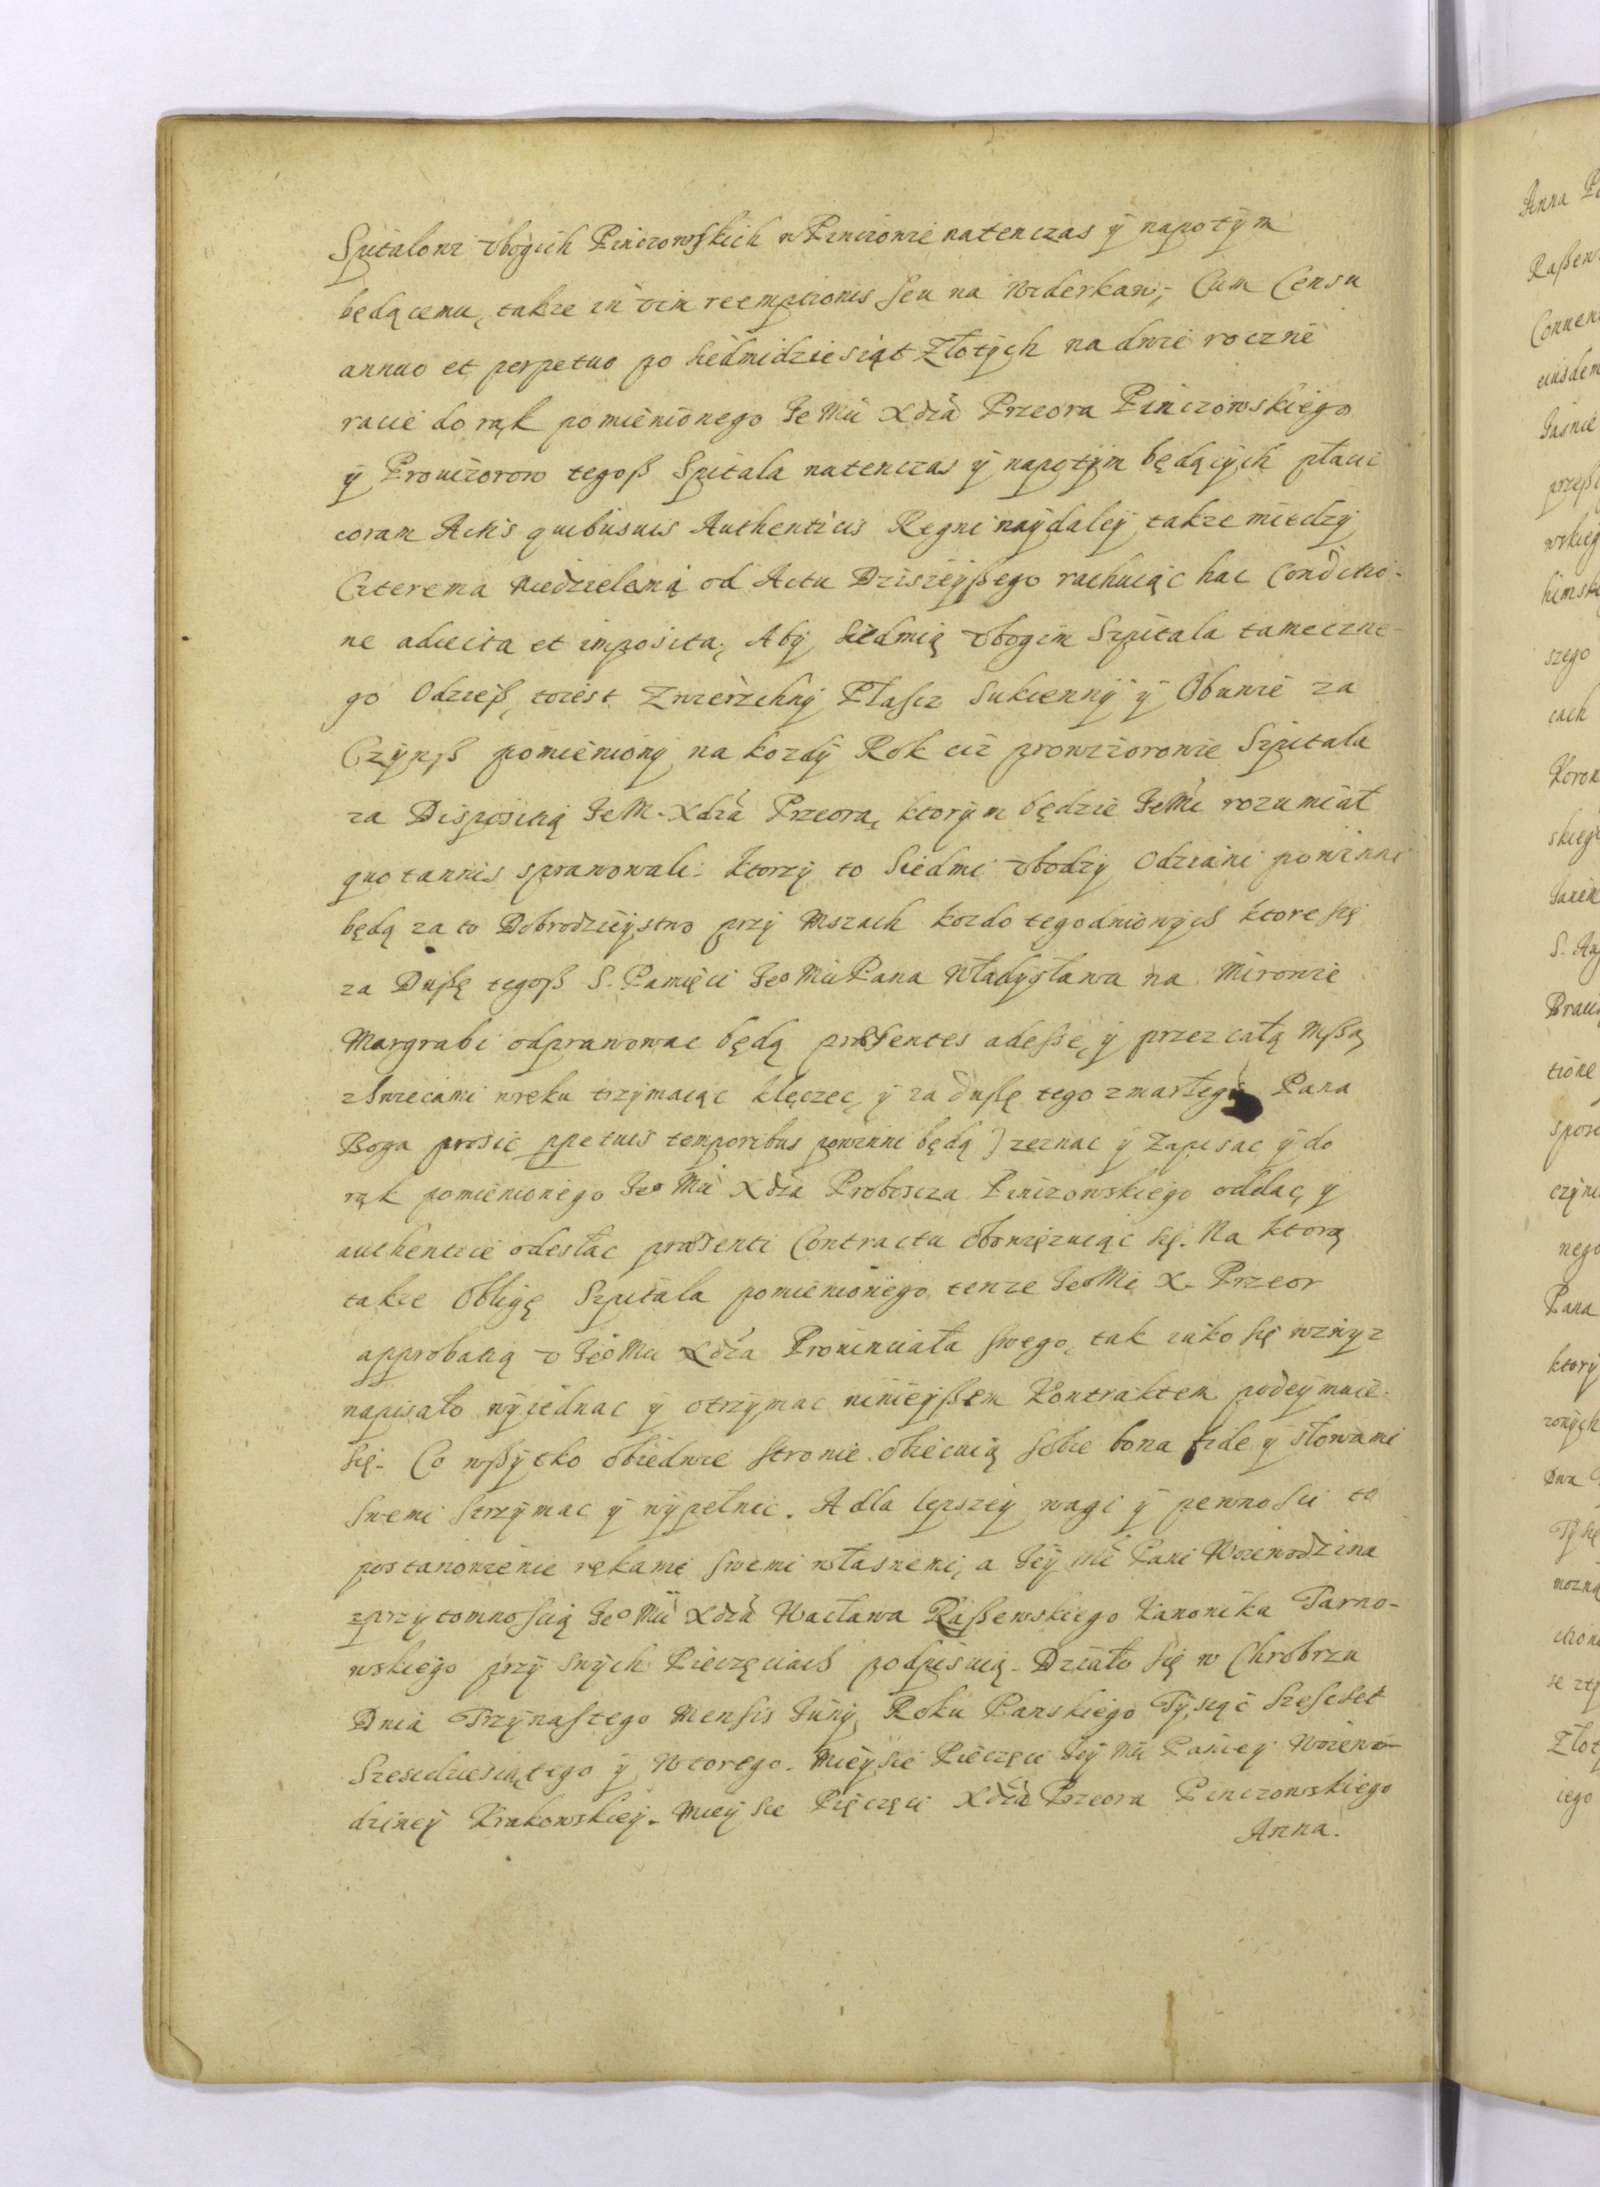 Szpitalowi vbogich Pinczowskich w Pinczowie natenczas ÿ napotÿm
będącemu, takze in vim reemptionis seu na Widerkaw, Cum Censu
annuo et perpetuo po siedmidziesiąt Złotÿch na dwie roczne
racie do rąk pomienionego Je Mci Xdza Przeora Pinczowskiego
ÿ Prouizorow tegoß Szpitala natenczas ÿ napotÿm będącÿch płacic
coram Actis quibusuis Authenticis Regni naÿdaleÿ takze miedzÿ
Czterema niedzielamą od Actu Dzisieÿßego rachuiąc hac Conditio-
ne adiecta et imposita, Abÿ siedmią vbogim Szpitala tameczne-
go Odzieß, toiest Zwierzchnÿ Płascz Sukiennÿ ÿ Obuwie za
Czÿnß pomienionÿ na kozdÿ Rok ciz prowizorowie Szpitala
za Dispositią Je M. Xdza Przeora, ktorÿm będzie Je Mc rozumiał
quotannis sprawowali: ktorzÿ to Siedmi vbodzÿ Odziani powinni
będą za to Dobrodzieÿstwo przÿ Mszach kozdo tegodniowÿch ktore się
za Dußę tegoß S. Pamięci Jeo Mci Pana Władÿsława na Mirowie
Margrabi odprawowac będą præsentes adesse, ÿ przez całą Mßą
z Swiecami w ręku trzÿmaiąc klęczec, ÿ za dußę tego zmarłego Pana
Boga prosic ppetuis temporibus powinni będą) zeznac ÿ Zapisac ÿ do
rąk pomienionego Jeo Mci Xdza Proboscza Pinczowskiego oddac, ÿ
authentice odesłac præsenti Contractu obowięzuiąc się. Na ktorą
takze Obligę Szpitala pomienionego tenze Jeo Mc X. Przeor
approbatią v Jeo Mci Xdza Prouinciała swego, tak iako się wzwÿz
napisało wÿiednac ÿ otrzÿmac ninieÿßem Kontraktem podeÿmuie
się. Co wßÿtko obiedwie stronie obiecuią sobie bona fide ÿ słowami
swemi strzÿmac ÿ wÿpełnic. A dla lepszeÿ wagi ÿ pewnosci to
postanowienie rękami swemi własnemi, a Jeÿ Mc Pani Woiewodzina
zprzÿtomnoscią Jeo Mci Xdza Wacława Raßewskiego Kanonika Tarno-
wskiego przÿ swÿch Pieczęciach podpisuią. Działo się w Chrobrzu
Dnia Trzÿnastego Mensis Junÿ, Roku Panskiego Tÿsiąc Szescset
Szescdziesiątego ÿ Wtorego. Mieÿsce Pieczęci Jeÿ Mci Panieÿ Woiewo-
dzineÿ Krakowskieÿ. Mieÿsce Pięczęci Xdza Przeora Pinczowskiego
Anna.